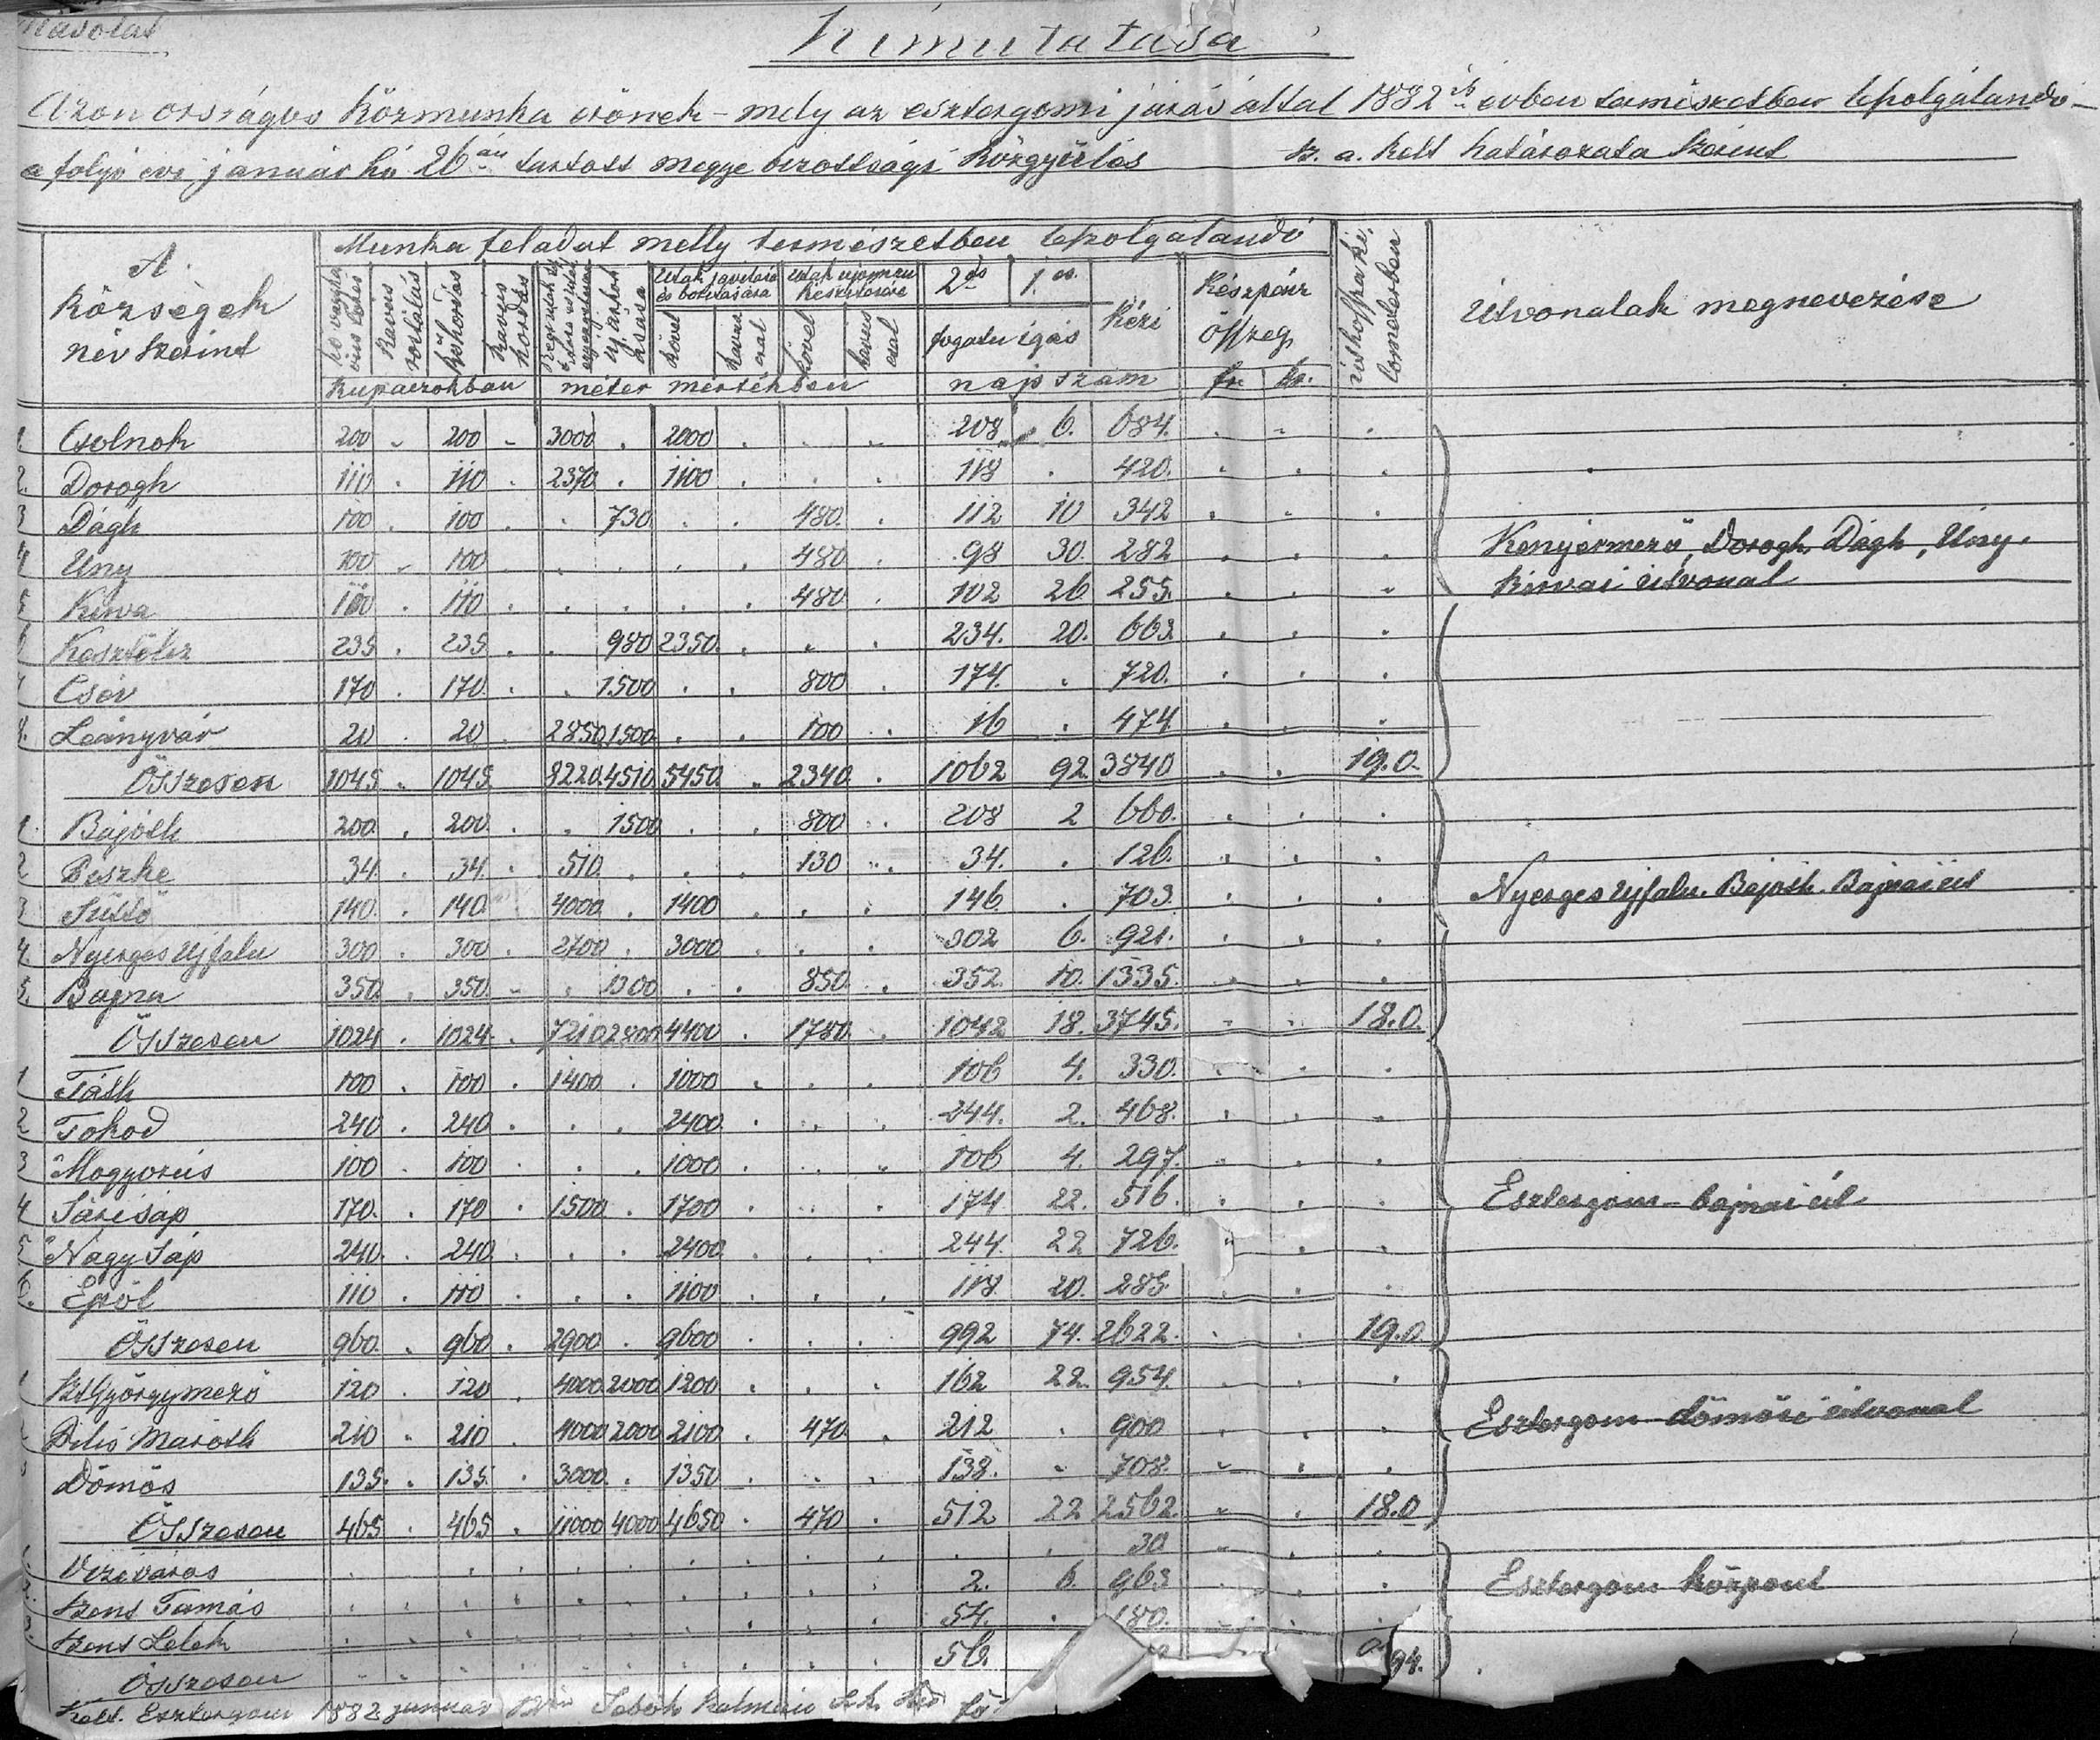 Másolat
Kimutatása
Azon országos közmunka erőnek – mely az esztergomi járás által 1882 ik évben természetben lepolgálandó –
a folyó évi január hó 26 án tartott megye bizottsági közgyűlés sz. a. kelt határozata szerint
A Községek név szerint
Munka feladat melly természetben lepolgálandó
Kavics rostálás
Kő kihordás
Kavics hordás
új árkok ásása
Utak javítása és borítására
kővel
kavics csal
Utak ujonnan készítésére
kővel
kavics csal
2 es 1. es.
fogatu igás
Kézi
Készpénz összeg
fr. kr.
Útvonalak megnevezése
Kupaczokban méter mértékben napszám
1. Csolnok 200 - 200 - 3000 . 2000 . . . 208 6. 684. . . .
2. Dorogh 110 . 110 . 2370 . 1100 . . . 118 . 420. . . .
3 Dágh 100 . 100 . . 730 . . 480. . 112 10 342 . . .
4 Uny 100 - 100 . . . . . 480 . 98 30. 282 . . .
5 Kirva 110 . 110 . . . . . 480 . 102 26 255. . . .
Kenyérmező, Dorogh, Dágh, Úny.
Kirvai útvonal
6 Kesztölcz 235 . 235 . . 980 2350 . . . 234. 20. 663. . . .
7 Csév 170 . 170 . . 1500 . . 800 . 174. . 720. . . .
8. Leányvár 20 . 20 . 2850 1300 . . 100 . 16 . 474 . . .
Összesen 1045 . 1045 . 8220 4510 5450 . 2340 . 1062 92. 3840 . . 19.0.
1. Bajóth 200 . 200 . . 1500 . . 800 . 208 2 660. . . .
2 Piszke 34 . 34. . 510 . . . 130 . 34. . 126. . . .
3 Süttő 140 . 140. . 4000 . 1400 . . . 146 . 703. . . .
Nyerges Ujfalu. Bajóth. Bajnai út
4. Nyerges Ujfalu 300 . 300 . 2700 . 3000 . . . 302 6. 921. . . .
5. Bajna 350 . 350 - . 1300 . . 850 . 352. 10. 1335. . . .
Összesen 1024 . 1024 . 7210 2800 4400 . 1780 . 1042 18. 3745. . . 18.0.
1 Táth 100 . 100 . 1400 . 1000 . . . 106 4. 330. . . .
2 Tokod 240 . 240 . . . 2400 . . . 244. 2. 468. . . .
3 Mogyorós 100 . 100 . . . 1000 . . . 106 4. 297. . . .
4 Sárisáp 170. . 170 . 1500 . 1700 . . . 174 22. 516. . . .
Esztergom – bajnai út
5 Nagy Sáp 240 . 240 . . . 2400 . . . 244. 22 726. . . .
6. Epöl 110 . 110 . . . 1100 . . . 118 20. 285 . . .
Összesen 960 . 960 . 2900 . 9600 . . . 992 74. 2622. . . 19.0
1 Sz. Györgymező 120 . 120 . 4000 2000 1200 . . . 162 22. 954. . . .
Pilis Maróth 210 . 210 . 4000 2000 2100 . 470 . 212 . 900 . . .
Esztergom – dömösi útvonal
Dömös 135. . 135. . 3000 . 1350 . . . 138. . 708. . . .
Összesen 465 . 465 . 11000 4000 4650 . 470 . 512 22 2562. . . 18.0
Viziváros . . . . . . . . . . . . 30 . . .
Szent Tamás . . . . . . . . . . 2. 6. 963 . . .
Esztergom központ
Szent Lélek . . . . . . . . . . 54. . 180. . . .
Összesen . . . . . . . . . . 56. 94.
Kelt. Esztergom 1882 január